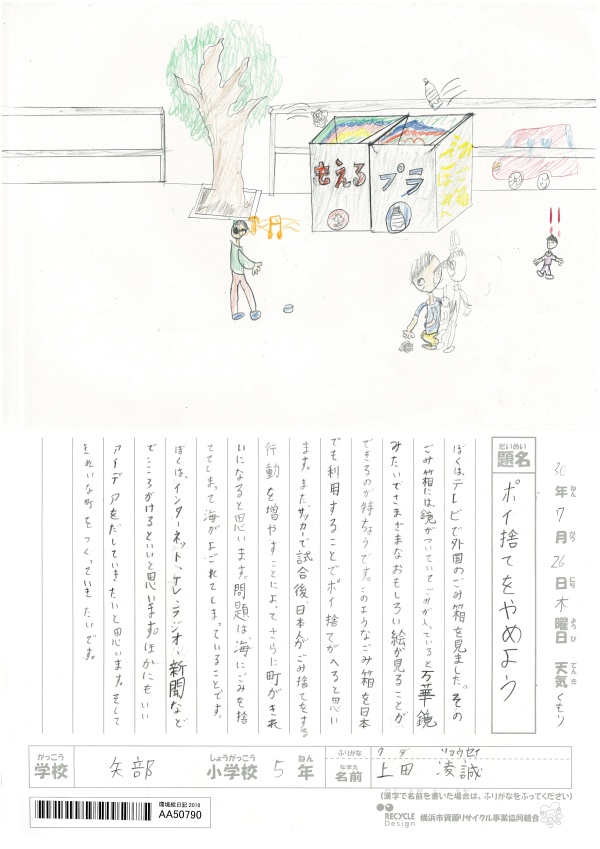 もえる
プラ
30年7月26日木曜日 天気くもり
ねん
がつ
にち
ようび
てんき
だいめい
題名
ポイ捨てをやめよう
ぼくは、テレビで外国のごみ箱を見ました。その
ごみ箱には、鏡がついていてごみが入っていると万華鏡
みたいでさまざまなおもしろい絵が見ることが
できるのが特ちょうです。このようなごみ箱を日本
でも利用することでポイ捨てがへると思い
ます。また、サッカーで試合後、日本人がごみ捨てをする
行動を増やすことによってさらに町がきれ
いになると思います。問題は海にごみを捨
ててしまって海がよごれてしまっていることです。
ぼくは、インターネット、テレビ、ラジオ、新聞など
でこころがけるといいと思います。ほかにもいい
アイデアをだしていきたいと思います。そして
きれいな町をつくっていきたいです。
がっこう
学校
矢部
しょうがっこう
小学校
5
ねん
年
ふりがな
なまえ
名前
上田 凌誠
(漢字で名前を書いた場合は、ふりがなをふってください)
環境絵日記 2018
AA50790
RECYCLE
Design
横浜市資源リサイクル事業協同組合